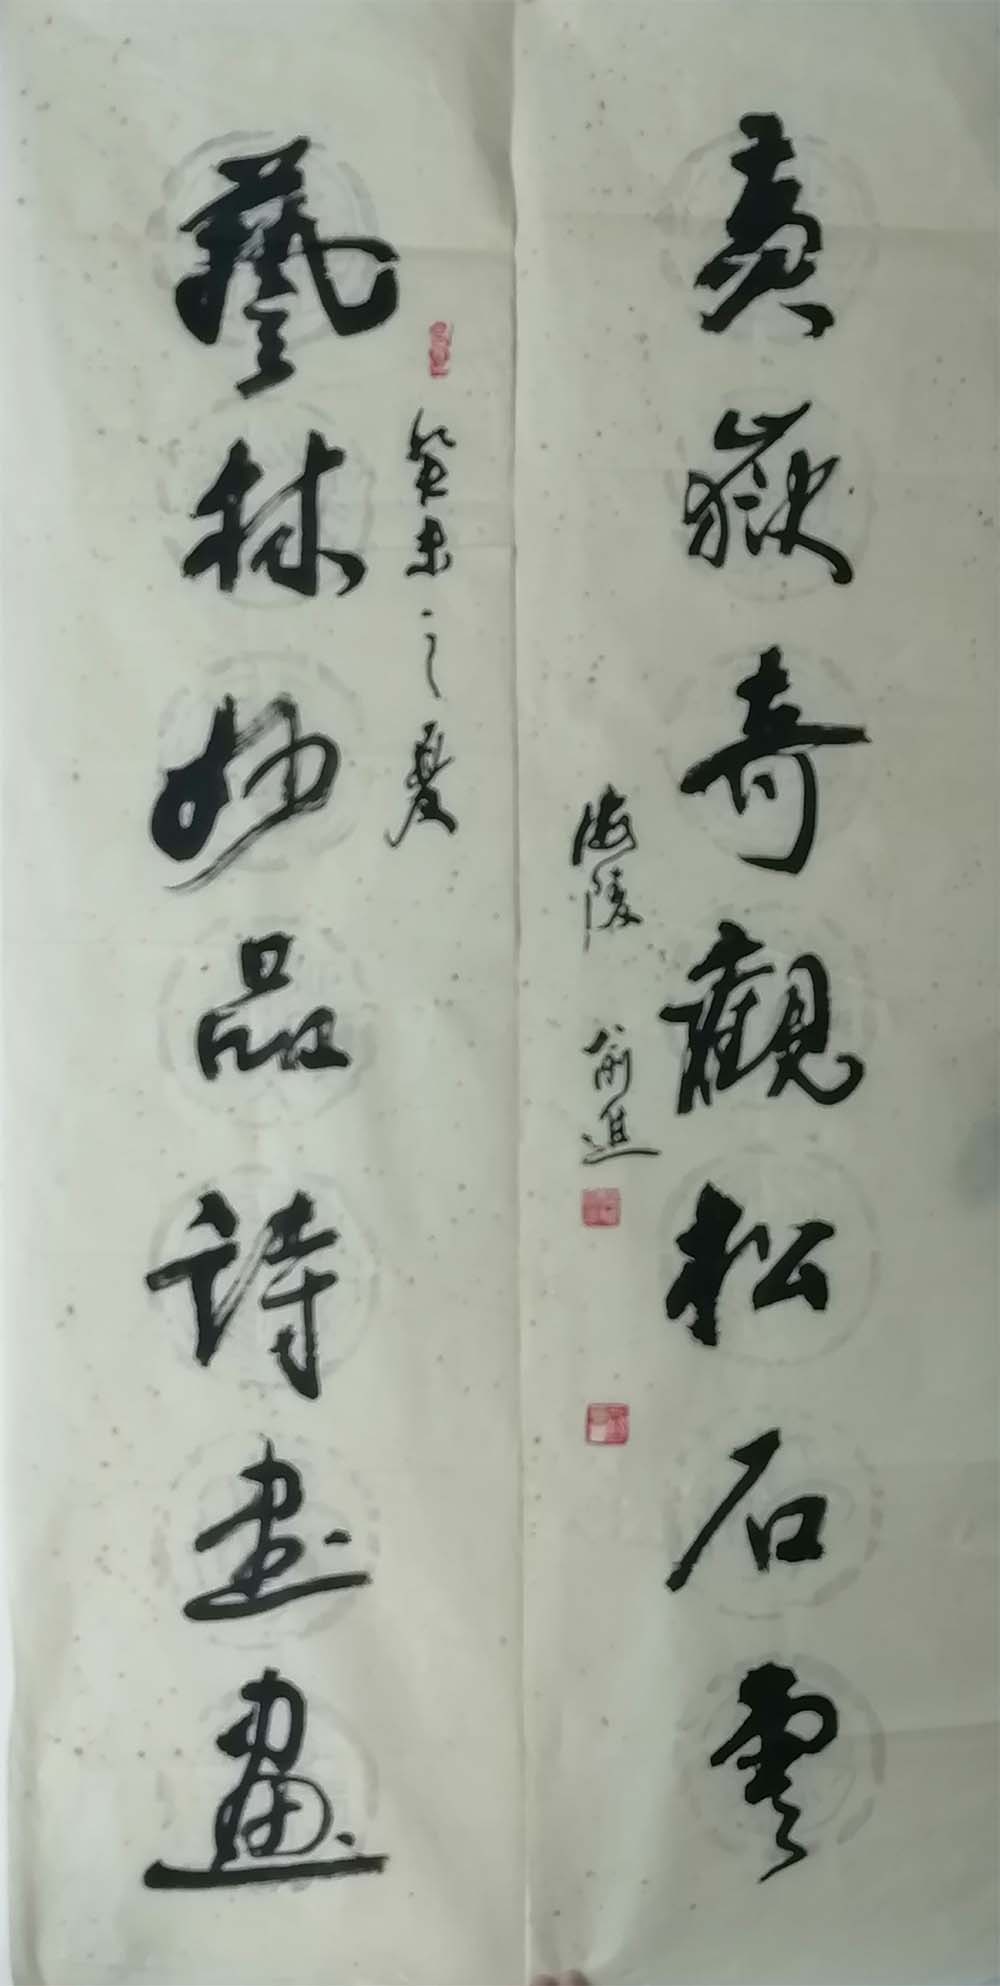 黄嶽奇觀松石雲
海陵 俞進
癸未之夏
藝林妙品詩書畫